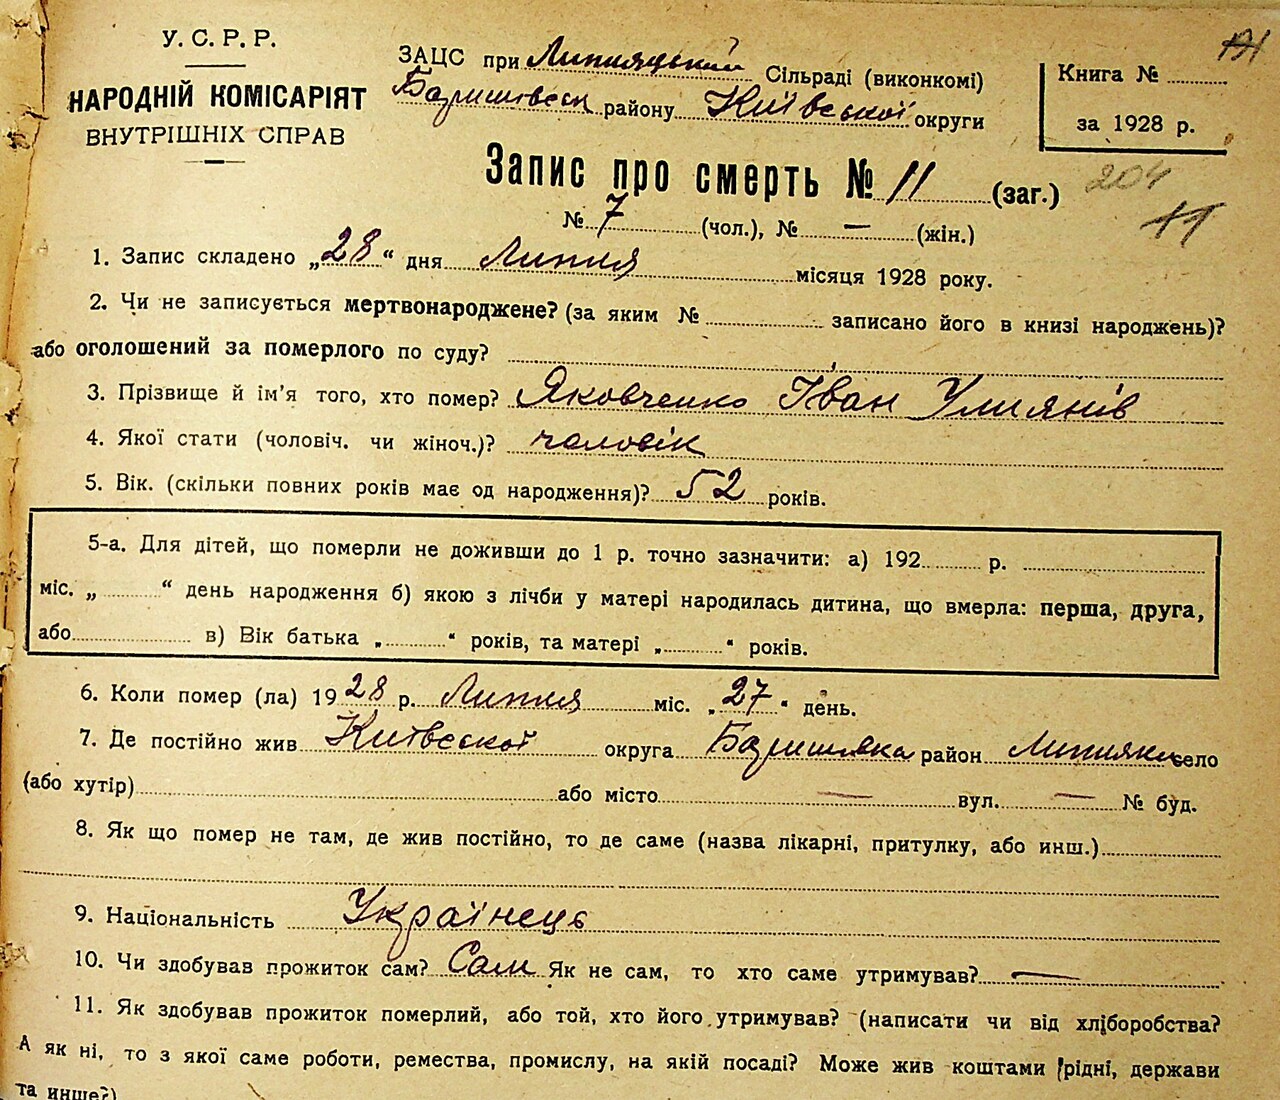 У. С. Р. Р.
НАРОДНІЙ КОМІСАРІЯТ
ВНУТРІШНІХ СПРАВ
ЗАЦС при Липняцький Сільраді (виконкомі)
Баришівськ району Київської округи
Книга №
за 1928 р.
Запис про смерть № 11 (заг.)
204
11
№ 7 (чол.), № — (жін.)
1. Запис складено „28“ дня Липня місяця 1928 року.
2. Чи не записується мертвонароджене? (за яким № записано його в книзі народжень)?
або оголошений за померлого по суду?
3. Прізвище й ім'я того, хто помер? Яковченко Іван Улиянів
4. Якої стати (чоловіч. чи жіноч.)? чоловік
5. Вік. (скільки повних років має од народження)? 52 років.
5-а. Для дітей, що померли не доживши до 1 р. точно зазначити: а) 192 р.
міс. „ “ день народження б) якою з лічби у матері народилась дитина, що вмерла: перша, друга,
або в) Вік батька „ “ років, та матері „ “ років.
6. Коли помер (ла) 1928 р. Липня міс. „27“ день.
7. Де постійно жив Київської округа Баришівка район Липняки село
(або хутір) або місто — вул. — № буд.
8. Як що помер не там, де жив постійно, то де саме (назва лікарні, притулку, або инш.)
9. Національність Українець
10. Чи здобував прожиток сам? Сам Як не сам, то хто саме утримував? —
11. Як здобував прожиток померлий, або той, хто його утримував? (написати чи від хліборобства?
А як ні, то з якої саме роботи, ремества, промислу, на якій посаді? Може жив коштами рідні, держави
та инше?)